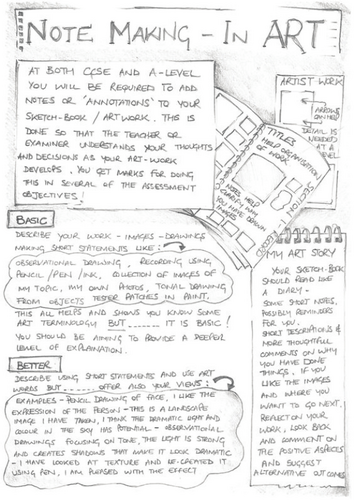 NOTE MAKING - IN ART
AT BOTH GCSE AND A-LEVEL
YOU WILL BE REQUIRED TO ADD
NOTES OR 'ANNOTATIONS' TO YOUR
SKETCH-BOOK / ARTWORK. THIS IS
DONE SO THAT THE TEACHER OR
EXAMINER UNDERSTANDS YOUR THOUGHTS
AND DECISIONS AS YOUR ART-WORK
DEVELOPS. YOU GET MARKS FOR DOING
THIS IN SEVERAL OF THE ASSESSMENT
OBJECTIVES!
ARTIST WORK
ARROWS
DETAIL IS
NEEDED
AT A
LEVEL
TITLES
HELP ORGANISATION
OF WORK
NOTES HELP
CLARIFY WHY
YOU HAVE
IMAGES
BASIC
DESCRIBE YOUR WORK - IMAGES - DRAWINGS
MAKING SHORT STATEMENTS LIKE:
OBSERVATIONAL DRAWING, RECORDING USING
PENCIL/PEN/INK, COLLECTION OF IMAGES OF
MY TOPIC, MY OWN PHOTOS, TONAL DRAWING
FROM OBJECTS TESTER PATCHES IN PAINT.
THIS ALL HELPS AND SHOWS YOU KNOW SOME
ART TERMINOLOGY BUT ...... IT IS BASIC!
YOU SHOULD BE AIMING TO PROVIDE A DEEPER
LEVEL OF EXPLANATION.
BETTER
DESCRIBE USING SHORT STATEMENTS AND USE ART
WORDS BUT ..... OFFER ALSO YOUR VIEWS:
EXAMPLES - PENCIL DRAWING OF FACE, I LIKE THE
EXPRESSION OF THE PERSON - THIS IS A LANDSCAPE
IMAGE I HAVE TAKEN, I THINK THE DRAMATIC LIGHT AND
COLOUR IN THE SKY HAS POTENTIAL - OBSERVATIONAL
DRAWINGS FOCUSING ON TONE, THE LIGHT IS STRONG
AND CREATES SHADOWS THAT MAKE IT LOOK DRAMATIC
- I HAVE LOOKED AT TEXTURE AND RE-CREATED IT
USING PEN, I AM PLEASED WITH THE EFFECT
MY ART STORY
YOUR SKETCH-BOOK
SHOULD READ LIKE
A DIARY -
SOME SHORT NOTES,
POSSIBLY REMINDERS
FOR YOU.
SHORT DESCRIPTIONS &
MORE THOUGHTFUL
COMMENTS ON WHY
YOU HAVE DONE
THINGS. IF YOU
LIKE THE IMAGES
AND WHERE YOU
WANT TO GO NEXT.
REFLECT ON YOUR
WORK, LOOK BACK
AND COMMENT ON
THE POSITIVE ASPECTS
AND SUGGEST
ALTERNATIVE OUTCOMES